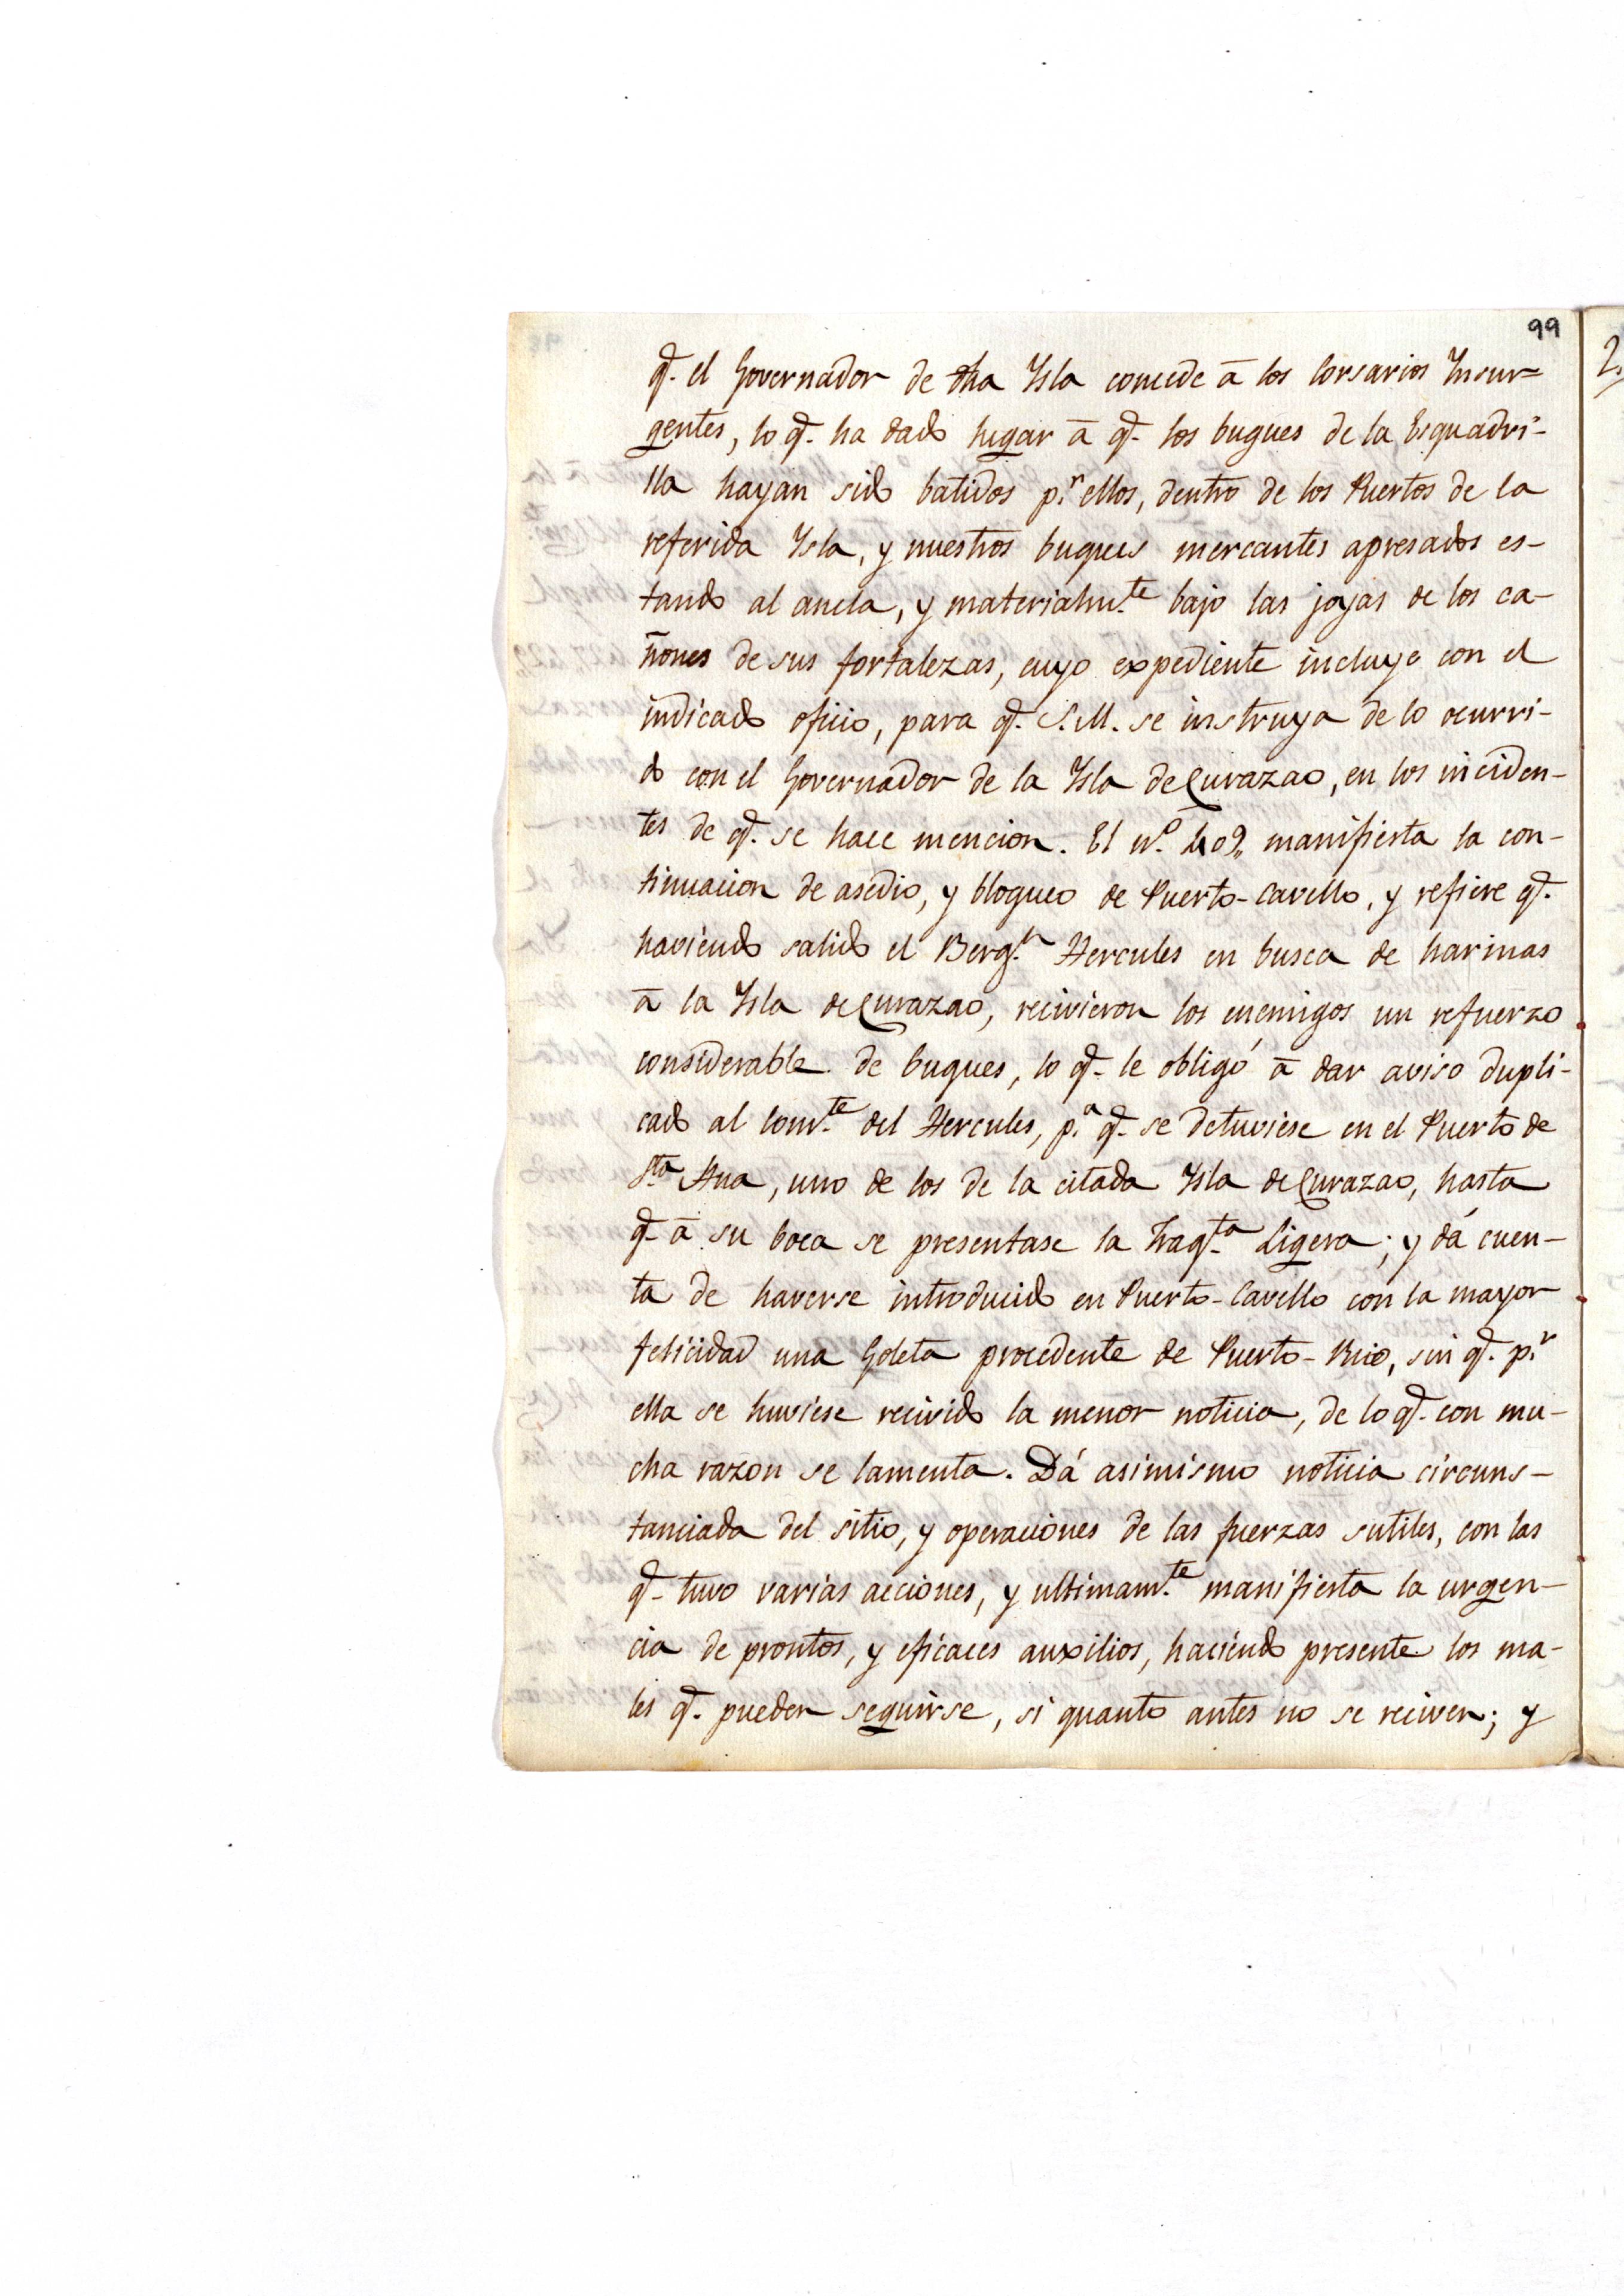 99
q.e el Governador de dha Ysla concede â los Corsarios Insur=
gentes, lo q.e ha dado lugar â q.e los buques de la Esquadri-
lla hayan sido batidos p.r ellos, dentro de los Puertos de la
referida Ysla, y nuestros buques mercantes apresados es-
tando al ancla, y materialm.te bajo las joyas de los ca-
ñones de sus fortalezas, cuyo expediente incluye con el
indicado oficio, para q.e S.M. se instruya de lo ocurri-
do con el Governador de la Ysla de Curazao, en los inciden-
tes de q.e se hace mencion. El n.o 409,, manifiesta la con-
tinuacion de asedio, y bloqueo de Puerto-Cavello, y refiere q.e
haviendo salido el Berg.n Hercules en busca de harinas
â la Ysla de Curazao, recivieron los enemigos un refuerzo
considerable de buques, lo q.e le obligó â dar aviso dupli-
cado al Com.te del Hercules, p.a q.e se detuviese en el Puerto de
S.ta Ana, uno de los de la citada Ysla de Curazao, hasta
q.e â su boca se presentase la Frag.ta Ligera; y dá cuen-
ta de haverse introducido en Puerto-Cavello con la mayor
felicidad una Goleta procedente de Puerto-Rico, sin q.e p.r
ella se huviese recivido la menor noticia, de lo q.e con mu-
cha razon se lamenta. Dá asimismo noticia circuns-
tanciada del sitio, y operaciones de las fuerzas sutiles, con las
q.e tuvo varias acciones, y ultimam.te manifiesta la urgen-
cia de prontos, y eficaces auxilios, haciendo presente los ma-
les q.e pueden seguirse, si quanto antes no se reciven; y